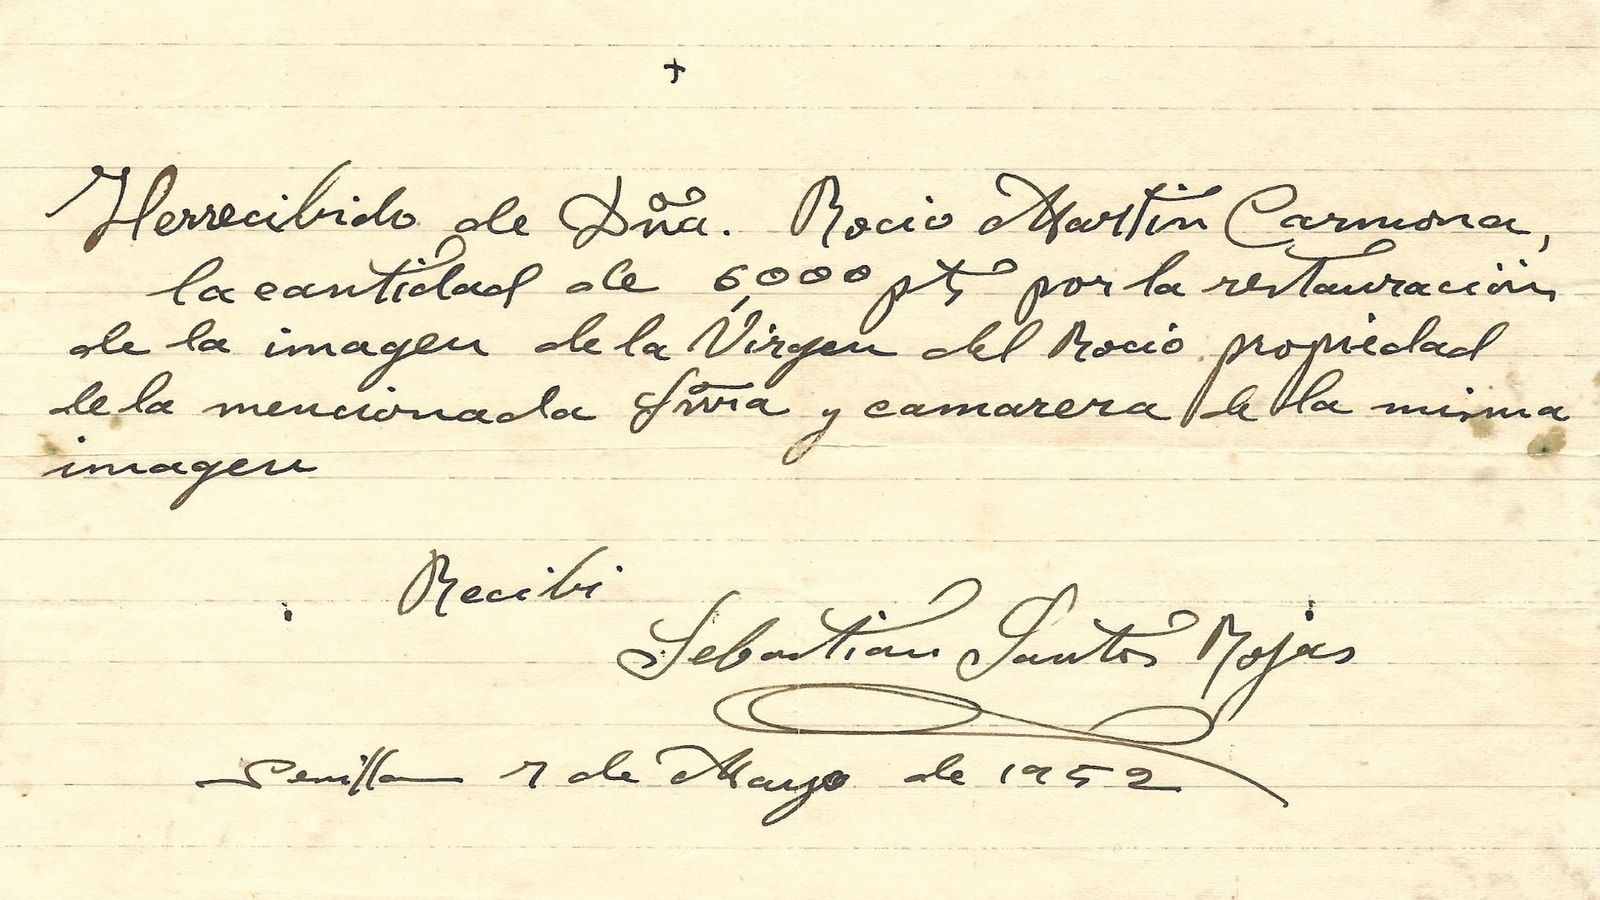 +
Herrecibido de Dña. Rocio Martin Carmona,
la cantidad de 6,000 pts por la restauración
de la imagen de la Virgen del Rocio propiedad
de la mencionada Sñra y camarera de la misma
imagen
Recibi
Sebastian Santos Rojas
Sevilla 7 de Mayo de 1952